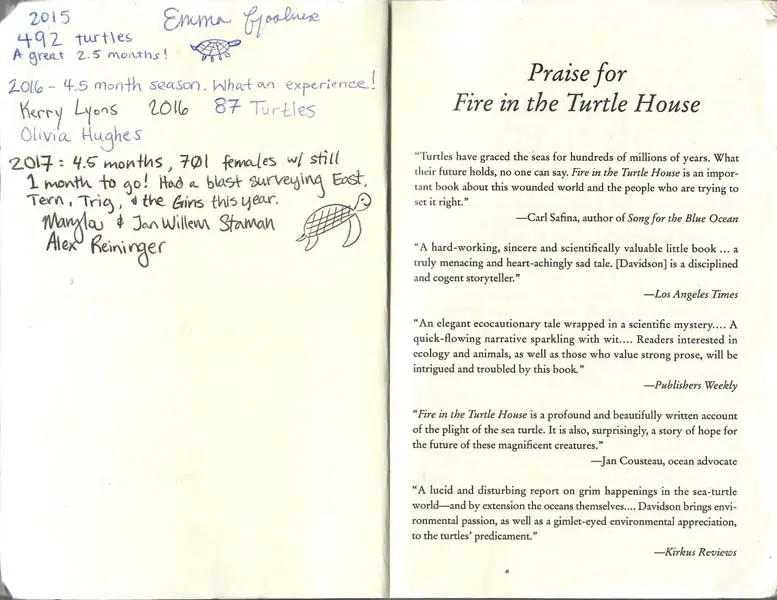 2015
Emma
492 turtles
A great 2.5 months!
2016 - 4.5 month season. What an experience!
Kerry Lyons 2016 87 Turtles
Olivia Hughes
2017: 4.5 months, 701 females w/ still
1 month to go! Had a blast surveying East,
Tern, Trig, & the Gins this year.
& Jan Willem Staman
Alex Reininger
Praise for
Fire in the Turtle House
“Turtles have graced the seas for hundreds of millions of years. What
their future holds, no one can say. Fire in the Turtle House is an impor-
tant book about this wounded world and the people who are trying to
set it right.”
—Carl Safina, author of Song for the Blue Ocean
“A hard-working, sincere and scientifically valuable little book ... a
truly menacing and heart-achingly sad tale. [Davidson] is a disciplined
and cogent storyteller.”
—Los Angeles Times
“An elegant ecocautionary tale wrapped in a scientific mystery.... A
quick-flowing narrative sparkling with wit.... Readers interested in
ecology and animals, as well as those who value strong prose, will be
intrigued and troubled by this book.”
—Publishers Weekly
“Fire in the Turtle House is a profound and beautifully written account
of the plight of the sea turtle. It is also, surprisingly, a story of hope for
the future of these magnificent creatures.”
—Jan Cousteau, ocean advocate
“A lucid and disturbing report on grim happenings in the sea-turtle
world—and by extension the oceans themselves.... Davidson brings envi-
ronmental passion, as well as a gimlet-eyed environmental appreciation,
to the turtles’ predicament.”
—Kirkus Reviews